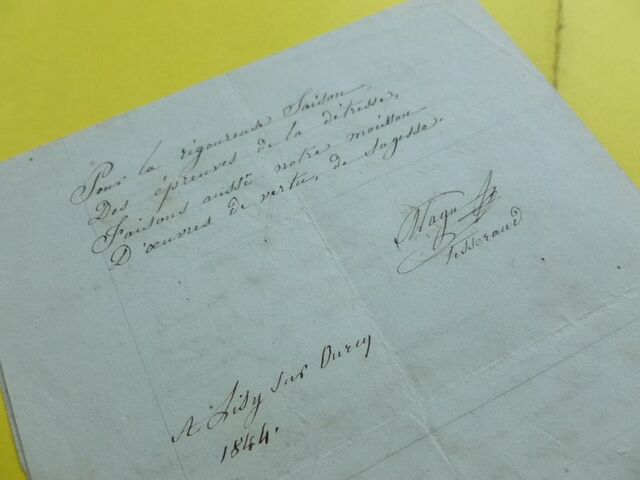 Pour la rigoureuse Saison
Des épreuves de la détresse,
Faisons aussi notre moisson
D'œuvres de vertu, de Sagesse.
Magu
Tisserand
A Lisy sur Ourcq
1844.